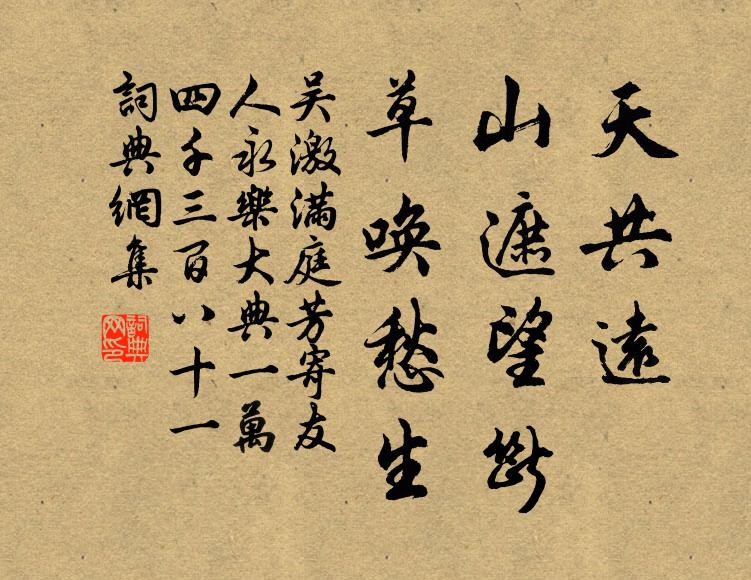 天共遠
山遮望斷
草喚愁生
吴激滿庭芳寄友
人永樂大典一萬
四千三百八十一
詞典網集
詞典網印